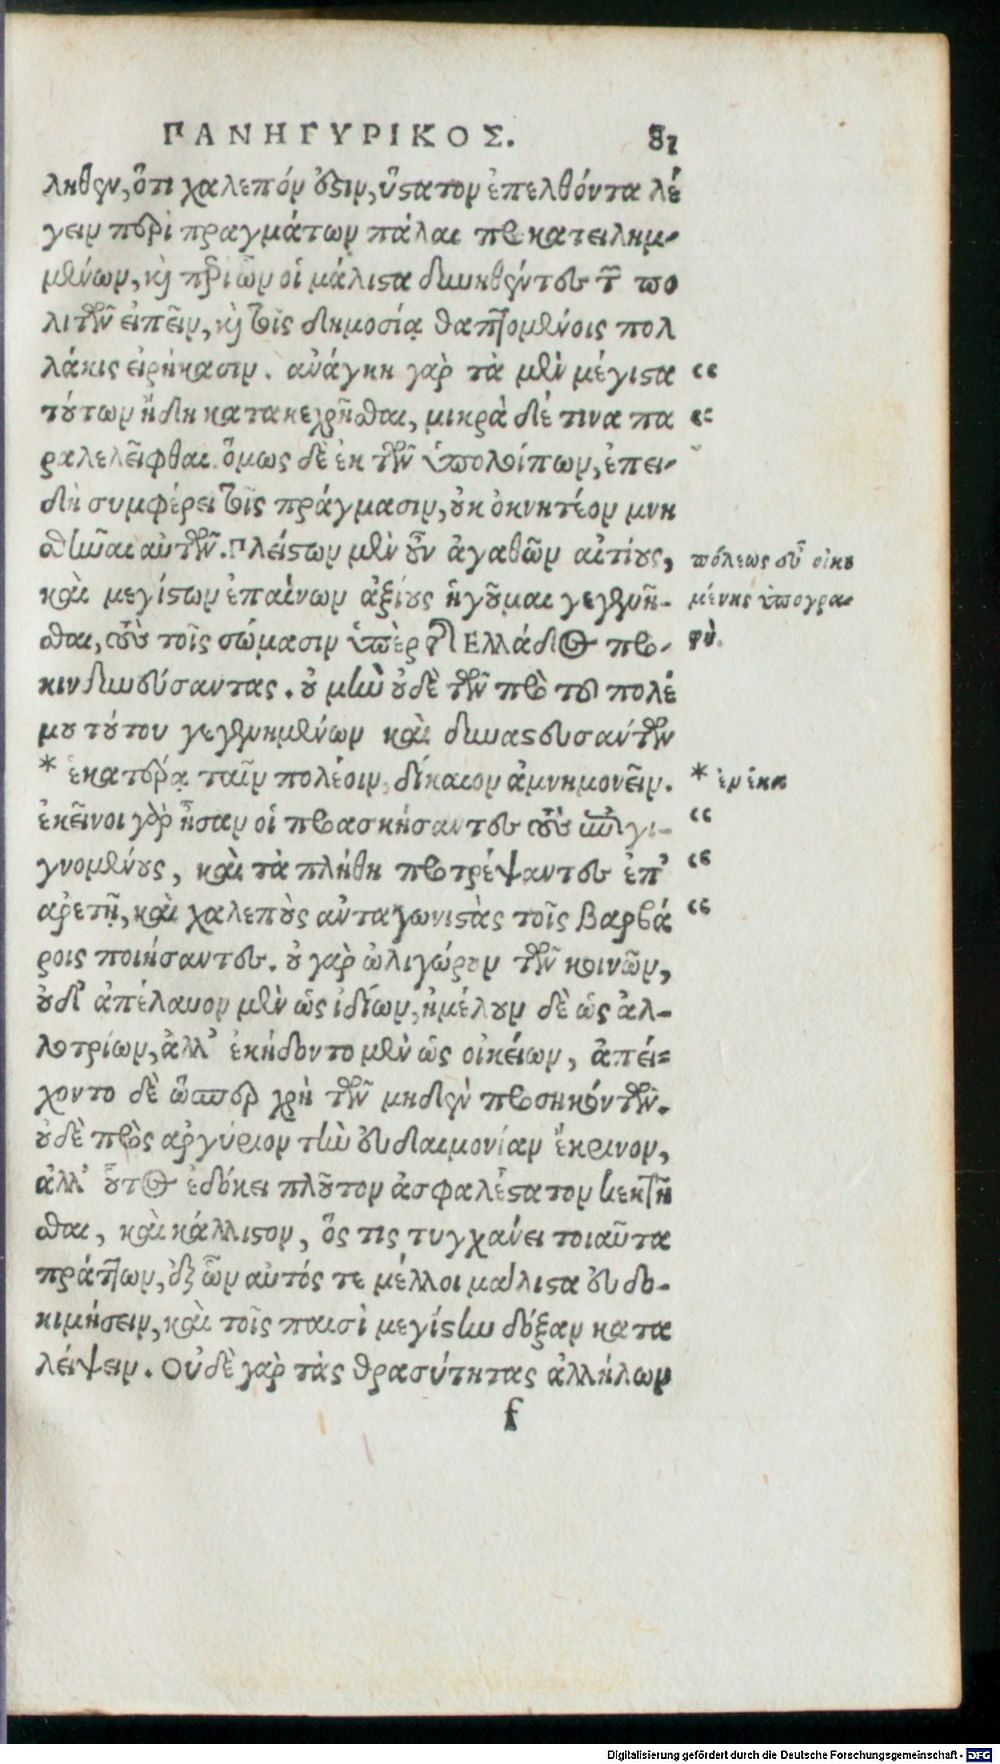 ΠΑΝΗΓΥΡΙΚΟΣ. 81
ληθὲν, ὅτι χαλεπόν ὅξιν, ὕςατον ἐπελθόντα λέ
γειν περὶ πραγμάτων πάλαι προκατειλημ-
μένων, καὶ περὶ ὧν οἱ μάλιςα δυνηθέντες τῶν πο
λιτῶν εἰπεῖν, καὶ τοῖς δημοσίᾳ θαπτομένοις πολ
λάκις εἰρήκασιν. ἀνάγκη γὰρ τὰ μὲν μέγιςα “
τούτων ἤδη κατακεχρῆσθαι, μικρὰ δέ τινα πα “
ραλελεῖφθαι. ὅμως δὲ ἐκ τῶν ὑπολοίπων, ἐπει-
δὴ συμφέρει τοῖς πράγμασιν, οὐκ ὀκνητέον μνη
σθῆναι αὐτῶν. Πλείςων μὲν οὖν ἀγαθῶν αἰτίους,
πόλεως οὖ οἰκου
καὶ μεγίςων ἐπαίνων ἀξίους ἡγοῦμαι γεγενῆ-
μένης ὑπογρα-
σθαι, τοὺς τοῖς σώμασιν ὑπὲρ τῆς Ελλάδος προ-
φὴ.
κινδυνεύσαντας. οὐ μὴν οὐδὲ τῶν πρὸ τοῦ πολέ
μου τούτου γεγενημένων καὶ δυναςευσάντων
* ἑκατέρᾳ ταῖν πολέοιν, δίκαιον ἀμνημονεῖν. * ἐν ἑκα
ἐκεῖνοι γὰρ ἦσαν οἱ προασκήσαντες τοὺς ἐπιγι- “
γνομένους, καὶ τὰ πλήθη προτρέψαντες ἐπ’ “
ἀρετῇ, καὶ χαλεποὺς ἀνταγωνιςὰς τοῖς Βαρβά “
ροις ποιήσαντες. οὐ γὰρ ὠλιγώρουν τῶν κοινῶν,
οὐδ’ ἀπέλαυον μὲν ὡς ἰδίων, ἠμέλουν δὲ ὡς ἀλ-
λοτρίων, ἀλλ’ ἐκήδοντο μὲν ὡς οἰκείων, ἀπεί-
χοντο δὲ ὥσπερ χρὴ τῶν μηδὲν προσηκόντων.
οὐδὲ πρὸς ἀργύριον τὴν εὐδαιμονίαν ἔκρινον,
ἀλλ’ οὗτος ἐδόκει πλοῦτον ἀσφαλέςατον κεκτῆ
σθαι, καὶ κάλλιςον, ὅς τις τυγχάνει τοιαῦτα
πράττων, ἐξ ὧν αὐτός τε μέλλοι μάλιςα εὐδο-
κιμήσειν, καὶ τοῖς παισὶ μεγίςην δόξαν κατα
λείψειν. Οὐδὲ γὰρ τὰς θρασύτητας ἀλλήλων
f
Digitalisierung gefördert durch die Deutsche Forschungsgemeinschaft - DFG